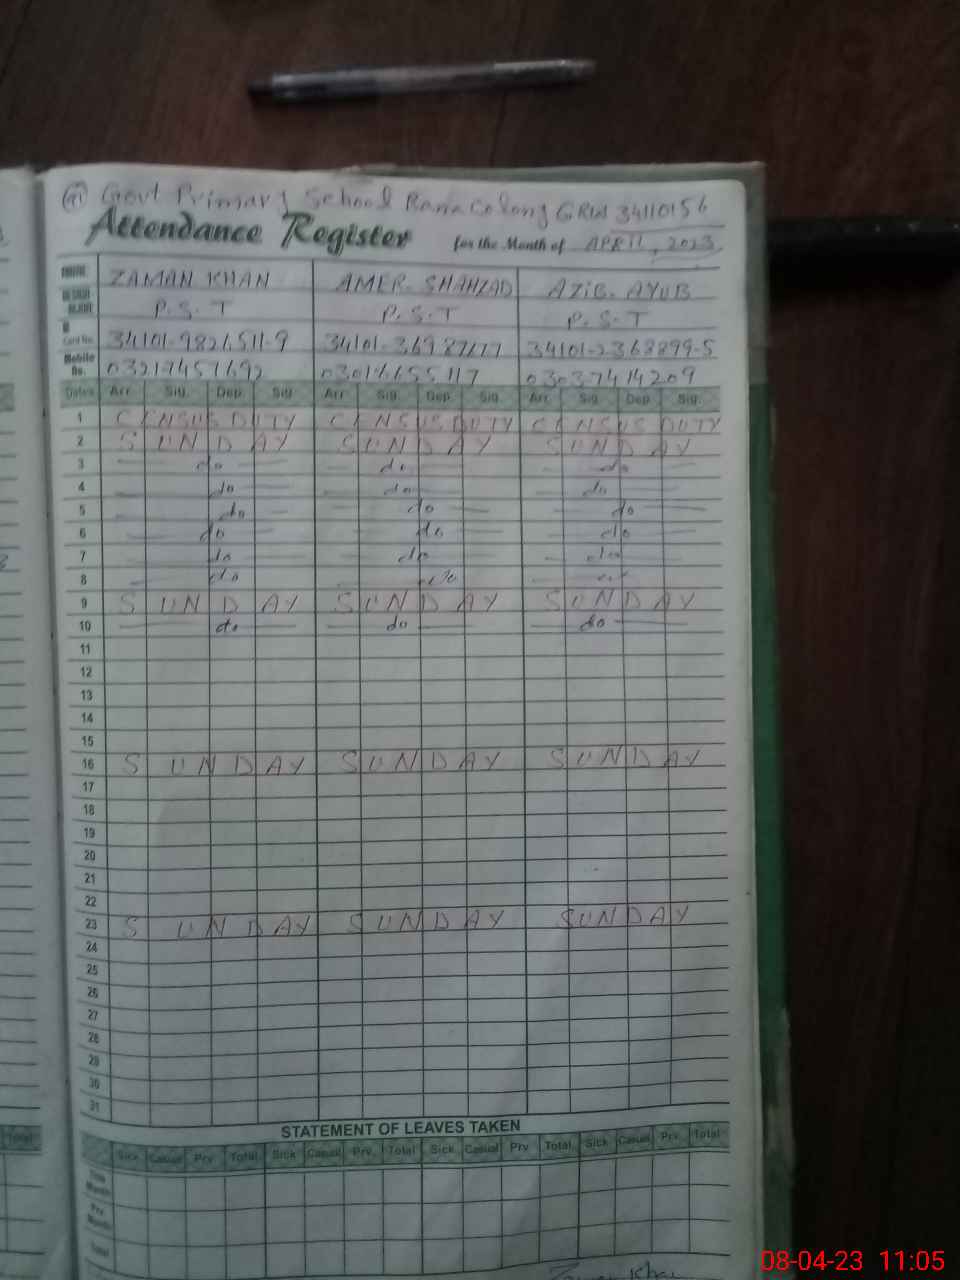 Govt Primary School Rana Colony GRW 34110156
Attendance Register for the Month of APRIL, 2023
NAME ZAMAN KHAN AMER. SHAHZAD AZIB. AYUB
P.S.T P.S.T P.S.T
Card No. 34101-9826511-9 34101- 34101-2368899-5
Mobile No. 03217457692 03016655117 03037414209
Dates Arr. Sig. Dep. Sig. Arr. Sig. Dep. Sig. Arr. Sig. Dep. Sig.
1 CENSUS DUTY CENSUS DUTY CENSUS DUTY
2 SUNDAY SUNDAY SUNDAY
3 do do do
4 do do do
5 do do do
6 do do do
7 do do do
8 do do
9 SUNDAY SUNDAY SUNDAY
10 do do do
11
12
13
14
15
16 SUNDAY SUNDAY SUNDAY
17
18
19
20
21
22
23 SUNDAY SUNDAY SUNDAY
24
25
26
27
28
29
30
31
STATEMENT OF LEAVES TAKEN
Sick Casual Prv. Total Sick Casual Prv. Total Sick Casual Prv. Total Sick Casual Prv. Total
This Month
Prv. Month
Total
Zaman Khan
08-04-23 11:05